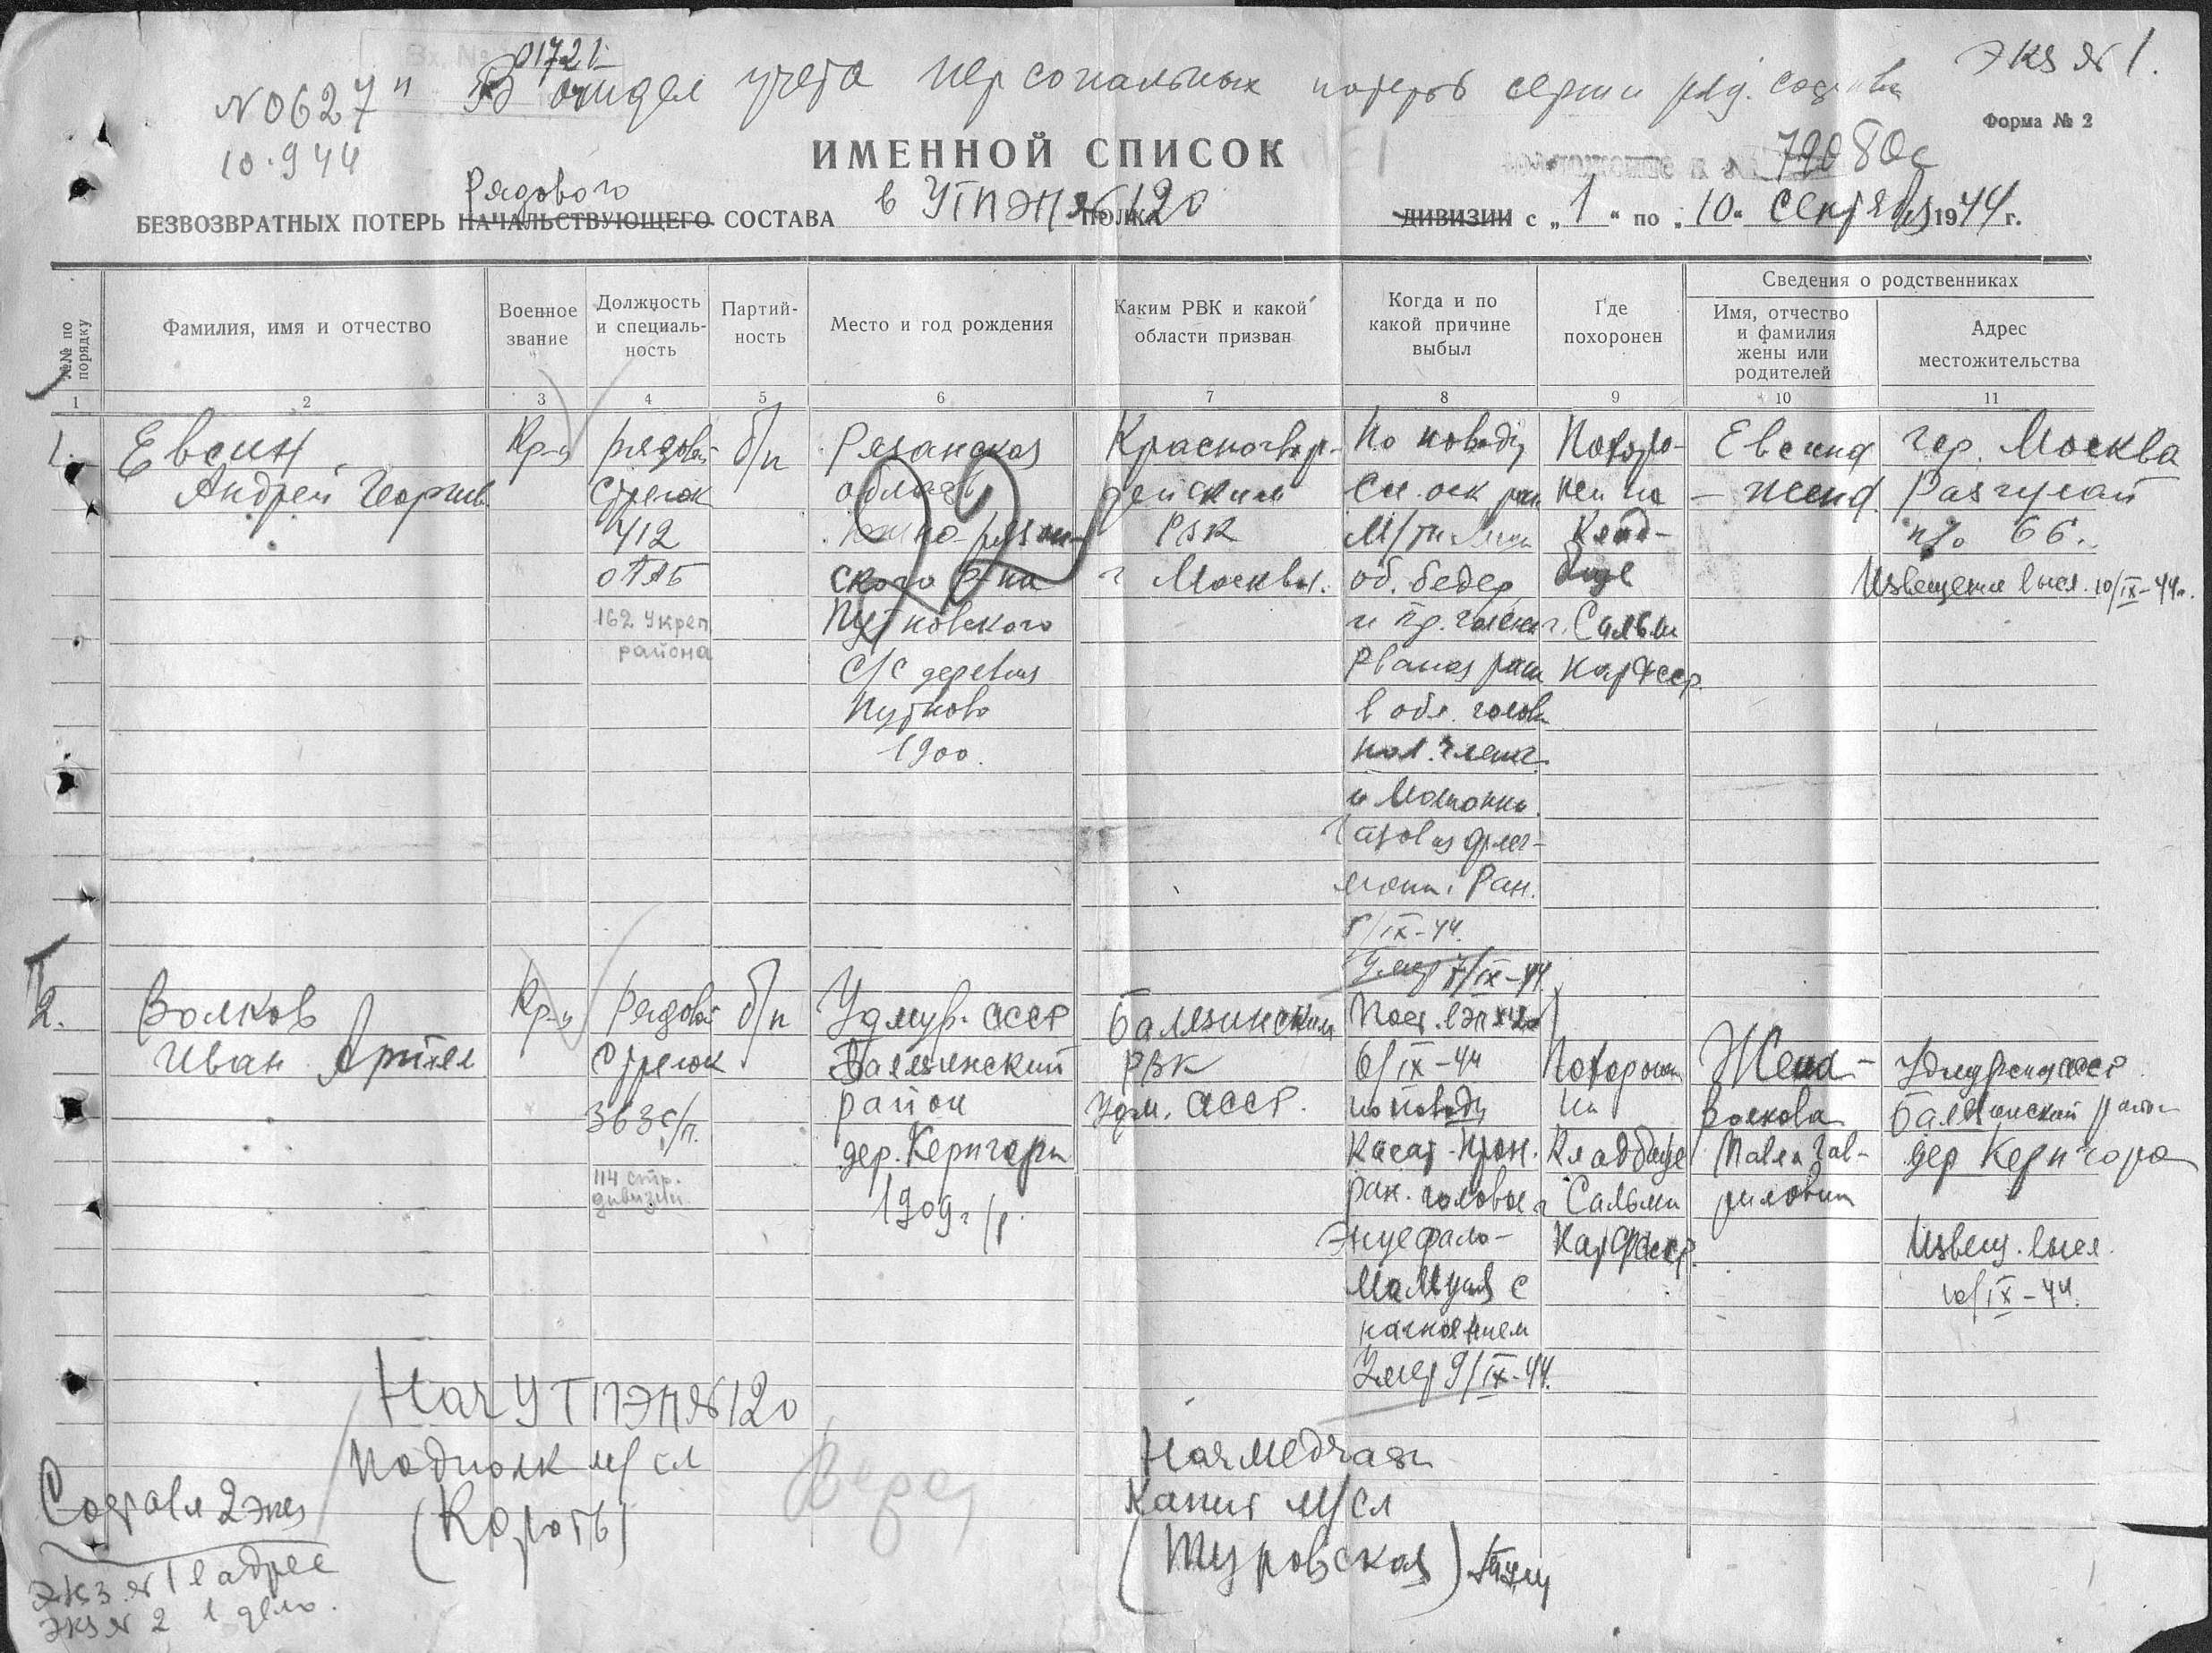 Вх. №
01721
ЭКЗ № 1.
№ 0627 п
В отдел учета персональных потерь серж и ряд. состава
10.9 44
Форма № 2
ИМЕННОЙ СПИСОК
Рядового
БЕЗВОЗВРАТНЫХ ПОТЕРЬ НАЧАЛЬСТВУЮЩЕГО СОСТАВА в УТПЭП № 120 ПОЛКА ДИВИЗИИ с „1“ по „10“ Сентября 1944 г.
№№ по порядку
Фамилия, имя и отчество
Военное
звание
Должность
и специаль-
ность
Партий-
ность
Место и год рождения
Каким РВК и какой
области призван
Когда и по
какой причине
выбыл
Где
похоронен
Сведения о родственниках
Имя, отчество
и фамилия
жены или
родителей
Адрес
местожительства
1 2 3 4 5 6 7 8 9 10 11
1.
Евсин
Андрей Георгиев.
Кр-ц
рядовой
Стрелок
412
ОПАБ
162 Укреп
района
б/п
Рязанская
область
ского р-на
Путковского
с/с деревня
Путково
1900.
Красногвар-
дейским
РВК
г Москвы.
По поводу
об. бедер
в обл. головы
пол. члена
и Мошонки.
Ран.
/IX-44.
Умер /IX-44.
Похоро-
нен на
Клад-
бище
г. Салми
Кар Ф ССР.
Евсина
- жена.
гор. Москва
Разгуляй
66.
Извещение высл. 10/IX-44г.
2.
Волков
Иван Артем
Кр-ц
Рядовой
Стрелок
363 с/п.
114 стр.
дивизии
б/п
Удмур. АССР
Балезинский
район
дер. Керигорт
1909 г/р.
Балезинским
РВК
Удм. АССР.
Пост. в ЭП
6/IX-44
по поводу
Касат.
ран. головы
Энцефало-
маляция с
нагноением
Умер 9/IX-44.
Похоронен
на
Кладбище
г Салми
Кар Ф ССР.
Жена -
Волкова
Удмурская АССР.
Балезинский район
дер Керигорт
Извещ. высл.
10/IX-44.
Нач УТПЭП № 120
Подполк м/сл
(Короть)
Начмедчасти
Капит м/сл
(Туровская)
Состав 2 экз
Экз. № 1 в адрес
Экз № 2 в дело.